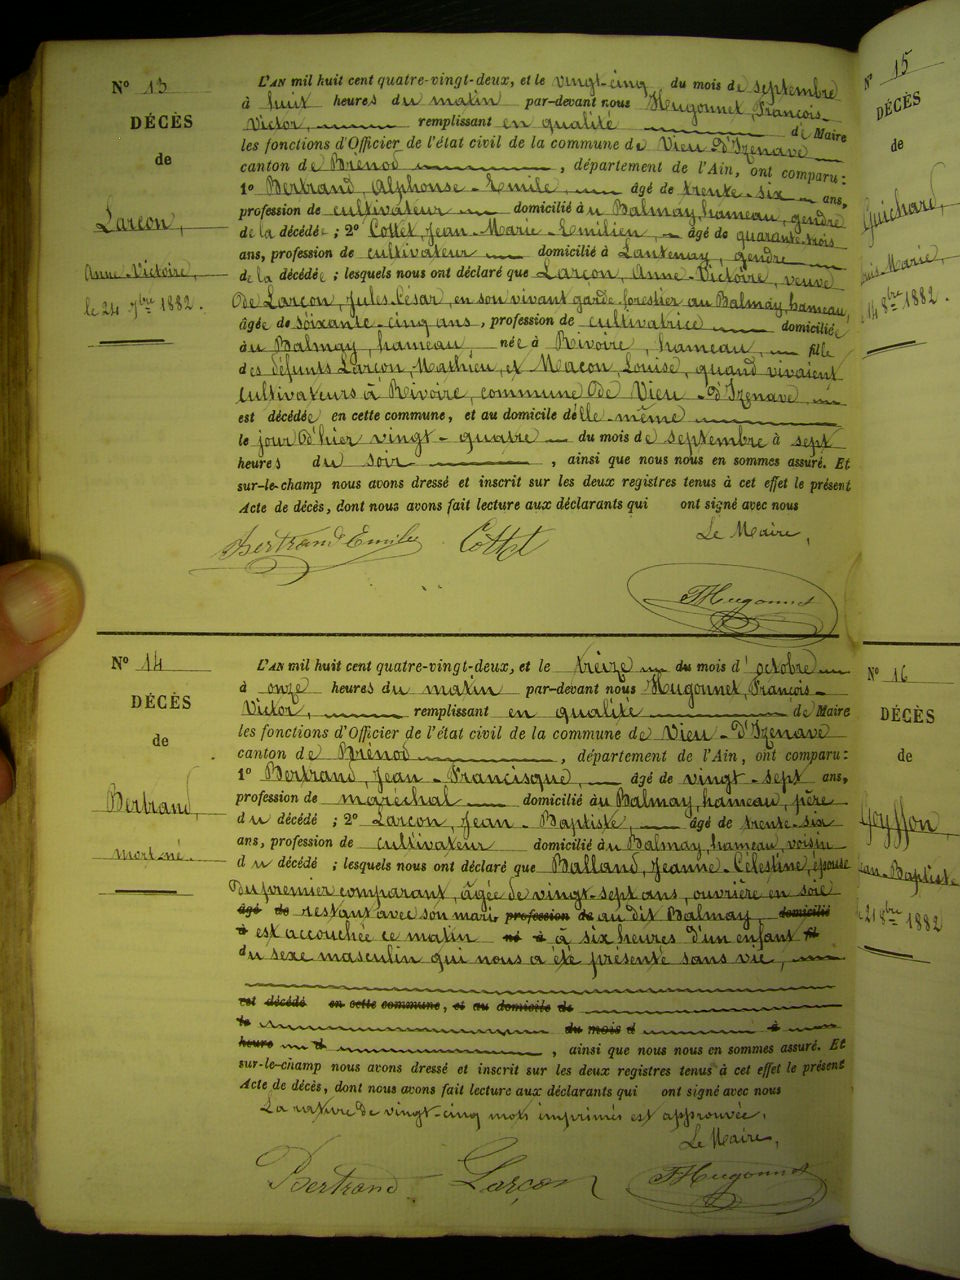 N° 13
DÉCÈS
de
Larçon,
Anne-Victoire,
le 24 7bre 1882.
L'AN mil huit cent quatre-vingt-deux, et le vingt-cinq du mois de septembre
à huit heures du matin par-devant nous Hugonnet, François-
Victor, remplissant en qualité de Maire
les fonctions d'Officier de l'état civil de la commune de Vieu-d'Izenave
canton de Brénod, département de l'Ain, ont comparu:
1° Bertrand, Alphonse-Emile, âgé de trente-six ans,
profession de cultivateur domicilié à u Balmay, hameau, gendre
de la décédée; 2° Cottet, Jean-Marie-Emilien, âgé de quarante-trois
ans, profession de cultivateur domicilié à Lantenay, gendre
de la décédée; lesquels nous ont déclaré que Larçon, Anne-Victoire, veuve
de Larçon, Jules-César, en son vivant garde forestier au Balmay, hameau,
âgée de soixante-cinq ans, profession de cultivatrice domiciliée
au Balmay, hameau, née à Rivoire, hameau, fille
des défunts Larçon, Mathieu, et Macon, Louise, quand vivaient
cultivateurs à Rivoire, commune de Vieu-d'Izenave
est décédée en cette commune, et au domicile d'elle-même
le jour d'hier vingt-quatre du mois de septembre à sept
heures du soir, ainsi que nous nous en sommes assuré. Et
sur-le-champ nous avons dressé et inscrit sur les deux registres tenus à cet effet le présent
Acte de décès, dont nous avons fait lecture aux déclarants qui ont signé avec nous
Le Maire,
Bertrand Emile Cottet
FHugonnet
N° 14
DÉCÈS
de
Bertrand,
mort-né.
L'AN mil huit cent quatre-vingt-deux, et le treize du mois d'octobre
à onze heures du matin par-devant nous Hugonnet, François-
Victor, remplissant en qualité de Maire
les fonctions d'Officier de l'état civil de la commune de Vieu-d'Izenave
canton de Brénod, département de l'Ain, ont comparu:
1° Bertrand, Jean-Francisque, âgé de vingt-sept ans,
profession de maréchal domicilié au Balmay, hameau, père
du décédé; 2° Larçon, Jean-Baptiste, âgé de trente-six
ans, profession de cultivateur domicilié au Balmay, hameau, voisin
du décédé; lesquels nous ont déclaré que Balland, Jeanne-Célestine, épouse
du premier comparant, âgée de vingt-sept ans, ouvrière en soie
âgé de restant avec son mari profession de au dit Balmay, domicilié
à est accouchée ce matin né à à six heures d'un enfant fil
du sexe masculin qui nous a été présenté sans vie,
est décédé en cette commune, et au domicile de
le du mois d à
heure d, ainsi que nous nous en sommes assuré. Et
sur-le-champ nous avons dressé et inscrit sur les deux registres tenus à cet effet le présent
Acte de décès, dont nous avons fait lecture aux déclarants qui ont signé avec nous
La rature de vingt-cinq mots imprimés est approuvée.
Le Maire,
Bertrand Larçon FHugonnet
N° 15
DÉCÈS
de
Guichard,
Marie,
14 8bre 1882.
N° 16
DÉCÈS
de
Jean-Baptiste
le 21 8bre 1882